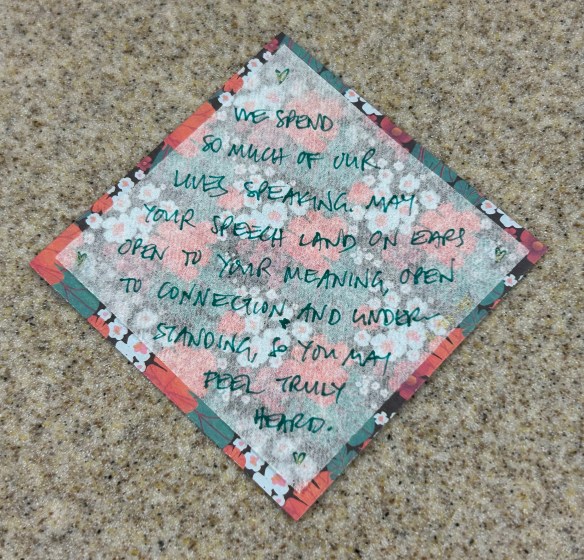 WE SPEND
SO MUCH OF OUR
LIVES SPEAKING. MAY
YOUR SPEECH LAND ON EARS
OPEN TO YOUR MEANING, OPEN
TO CONNECTION, AND UNDER-
STANDING, SO YOU MAY
FEEL TRULY
HEARD.